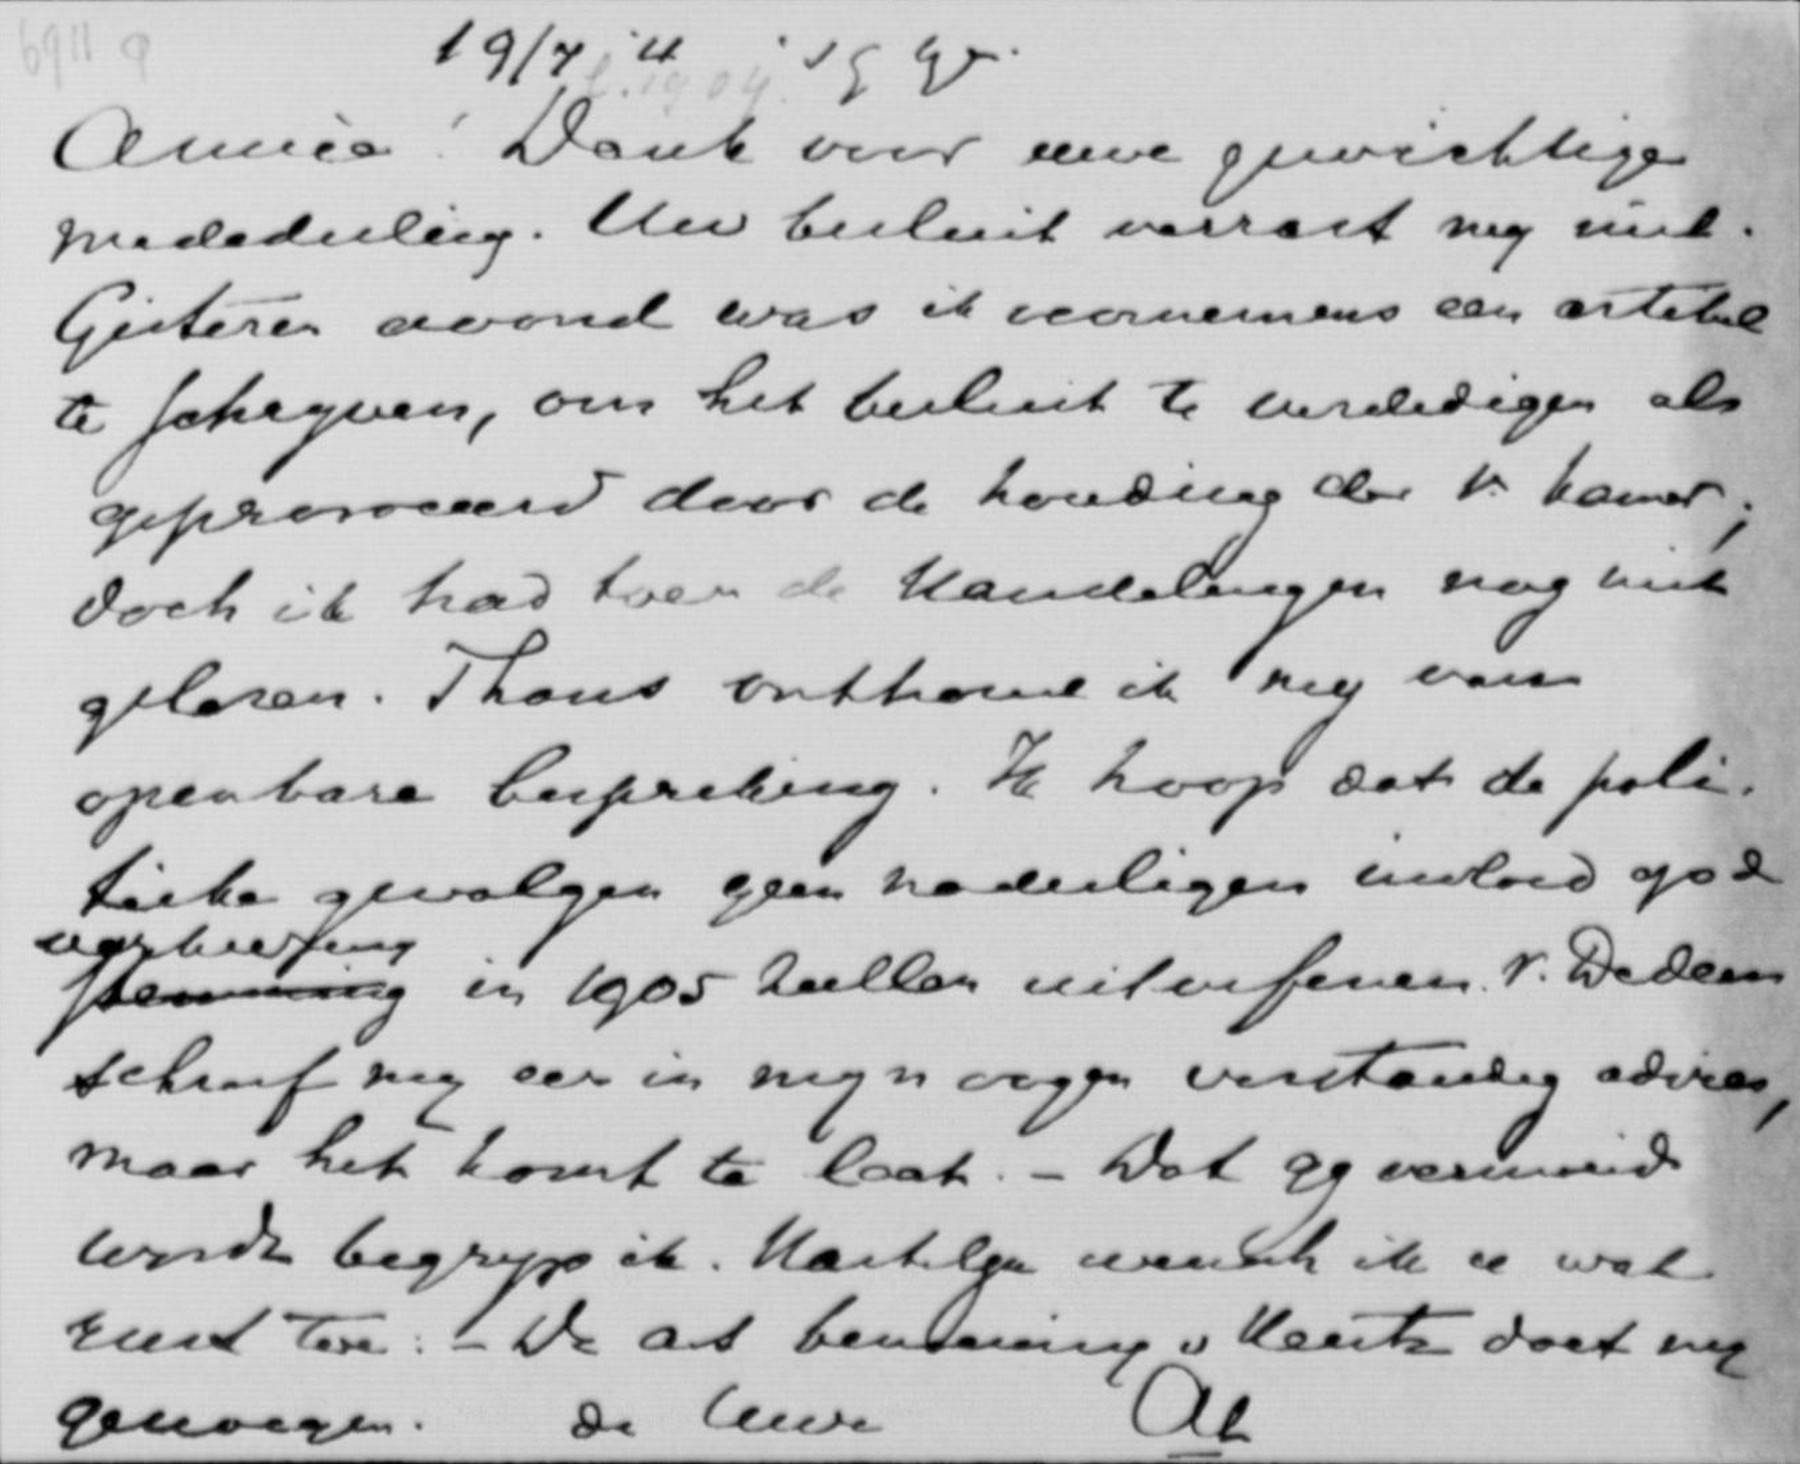 6911 9
19/7 '4
Amice! Dank voor uwe gewichtige
mededeeling. Uw besluit verrast my niet.
Gisteren avond was ik voornemens een artikel
te schryven, om het besluit te verdedigen als
geprovoceerd door de houding der 1e kamer;
doch ik had toen de Handelingen nog niet
gelezen. Thans onthoud ik my van
openbare bespreking. Ik hoop dat de poli-
tieke gevolgen geen nadeeligen invloed op d
stemming in 1905 zullen uitoefenen. v. Dedem
schreef my een in myn oogen verstandig advies,
maar het komt te laat. – Dat gy vermoeid
wordt begryp ik. Hartelyk wensch ik u wat
rust toe. – De benoeming v Heutsz doet my
genoegen. de Uwe AK